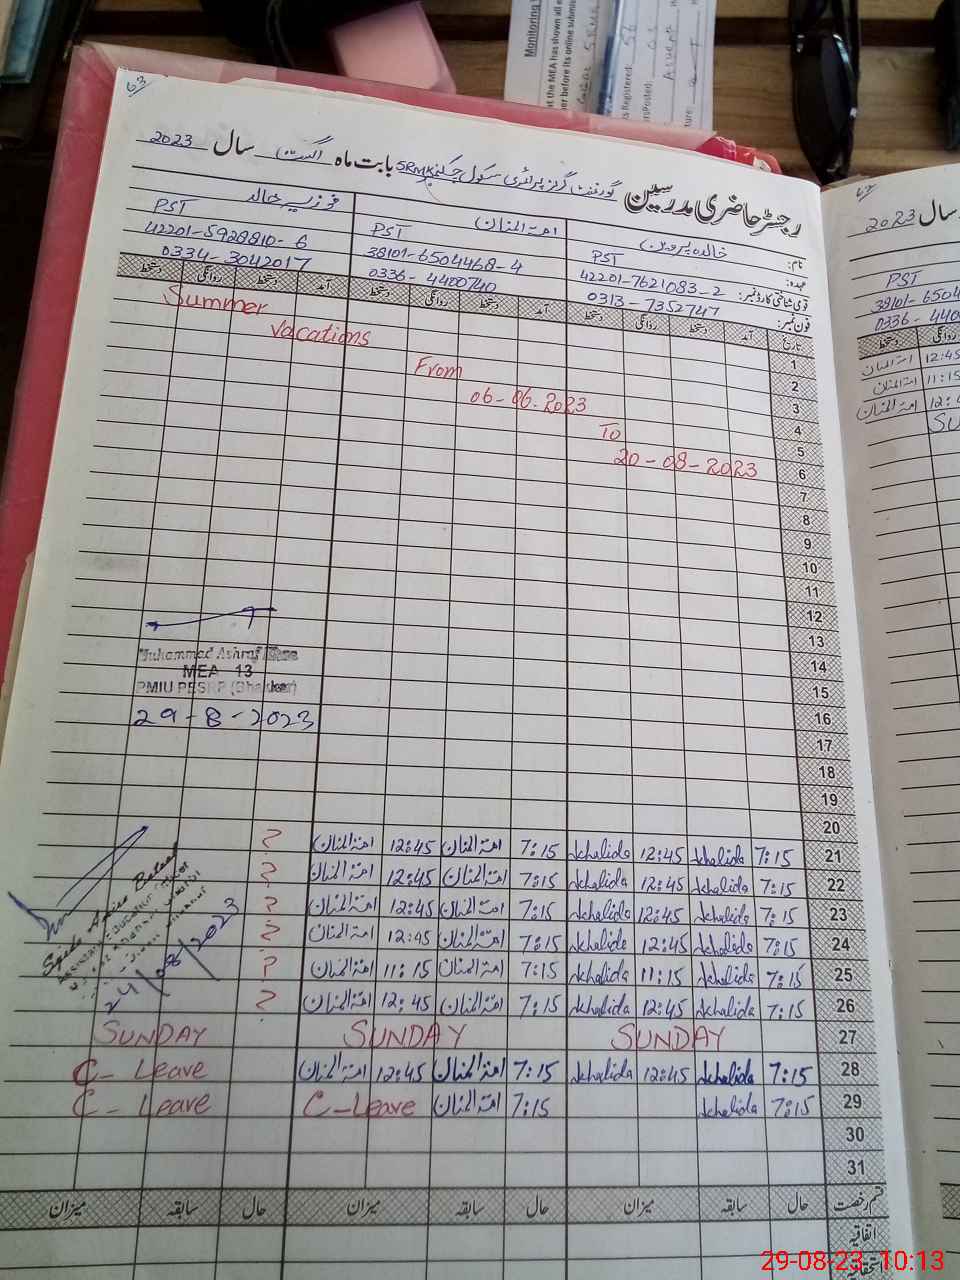 Monitoring
t the MEA has shown all
er before its online submis
s Registered: 56
rsPosted:
63
رجسٹر حاضری مدرسین گورنمنٹ گرلز پرائمری سکول SRMK بابت ماہ اگست سال 2023
نام: خالدہ پروین امتہ المنان فوزیہ خالد
عہدہ: PST PST PST
قومی شناختی کارڈ نمبر: 42201-7621083-2 38101-6504468-4 42201-5928810-6
فون نمبر: 0313-7352747 0336-4400740 0334-3042017
تاریخ آمد دستخط روانگی دستخط آمد دستخط روانگی دستخط آمد دستخط روانگی دستخط
Summer
Vacations
From
06-06-2023
To
20-08-2023
1
2
3
4
5
6
7
8
9
10
11
12
13
14
15
16
17
18
19
20
Muhammad Ashraf
MEA 13
PMIU PESRP (Bhakkar)
29-8-2023
21 7:15 Khalida 12:45 Khalida 7:15 امتہ المنان 12:45 امتہ المنان ?
22 7:15 Khalida 12:45 Khalida 7:15 امتہ المنان 12:45 امتہ المنان ?
23 7:15 Khalida 12:45 Khalida 7:15 امتہ المنان 12:45 امتہ المنان ?
24 7:15 Khalida 12:45 Khalida 7:15 امتہ المنان 12:45 امتہ المنان ?
25 7:15 Khalida 11:15 Khalida 7:15 امتہ المنان 11:15 امتہ المنان ?
26 7:15 Khalida 12:45 Khalida 7:15 امتہ المنان 12:45 امتہ المنان ?
24/08/2023
27 SUNDAY SUNDAY SUNDAY
28 7:15 Khalida 12:45 Khalida 7:15 امتہ المنان 12:45 امتہ المنان C-Leave
29 7:15 Khalida 7:15 امتہ المنان C-Leave C-Leave
30
31
قسم رخصت حال سابقہ میزان حال سابقہ میزان حال سابقہ میزان
اتفاقیہ
استحقاقیہ
سال 2023
PST
38101-6504
0336-440
روانگی دستخط
12:45 امتہ المنان
11:15 امتہ المنان
12:4 امتہ المنان
SU
29-08-23 10:13